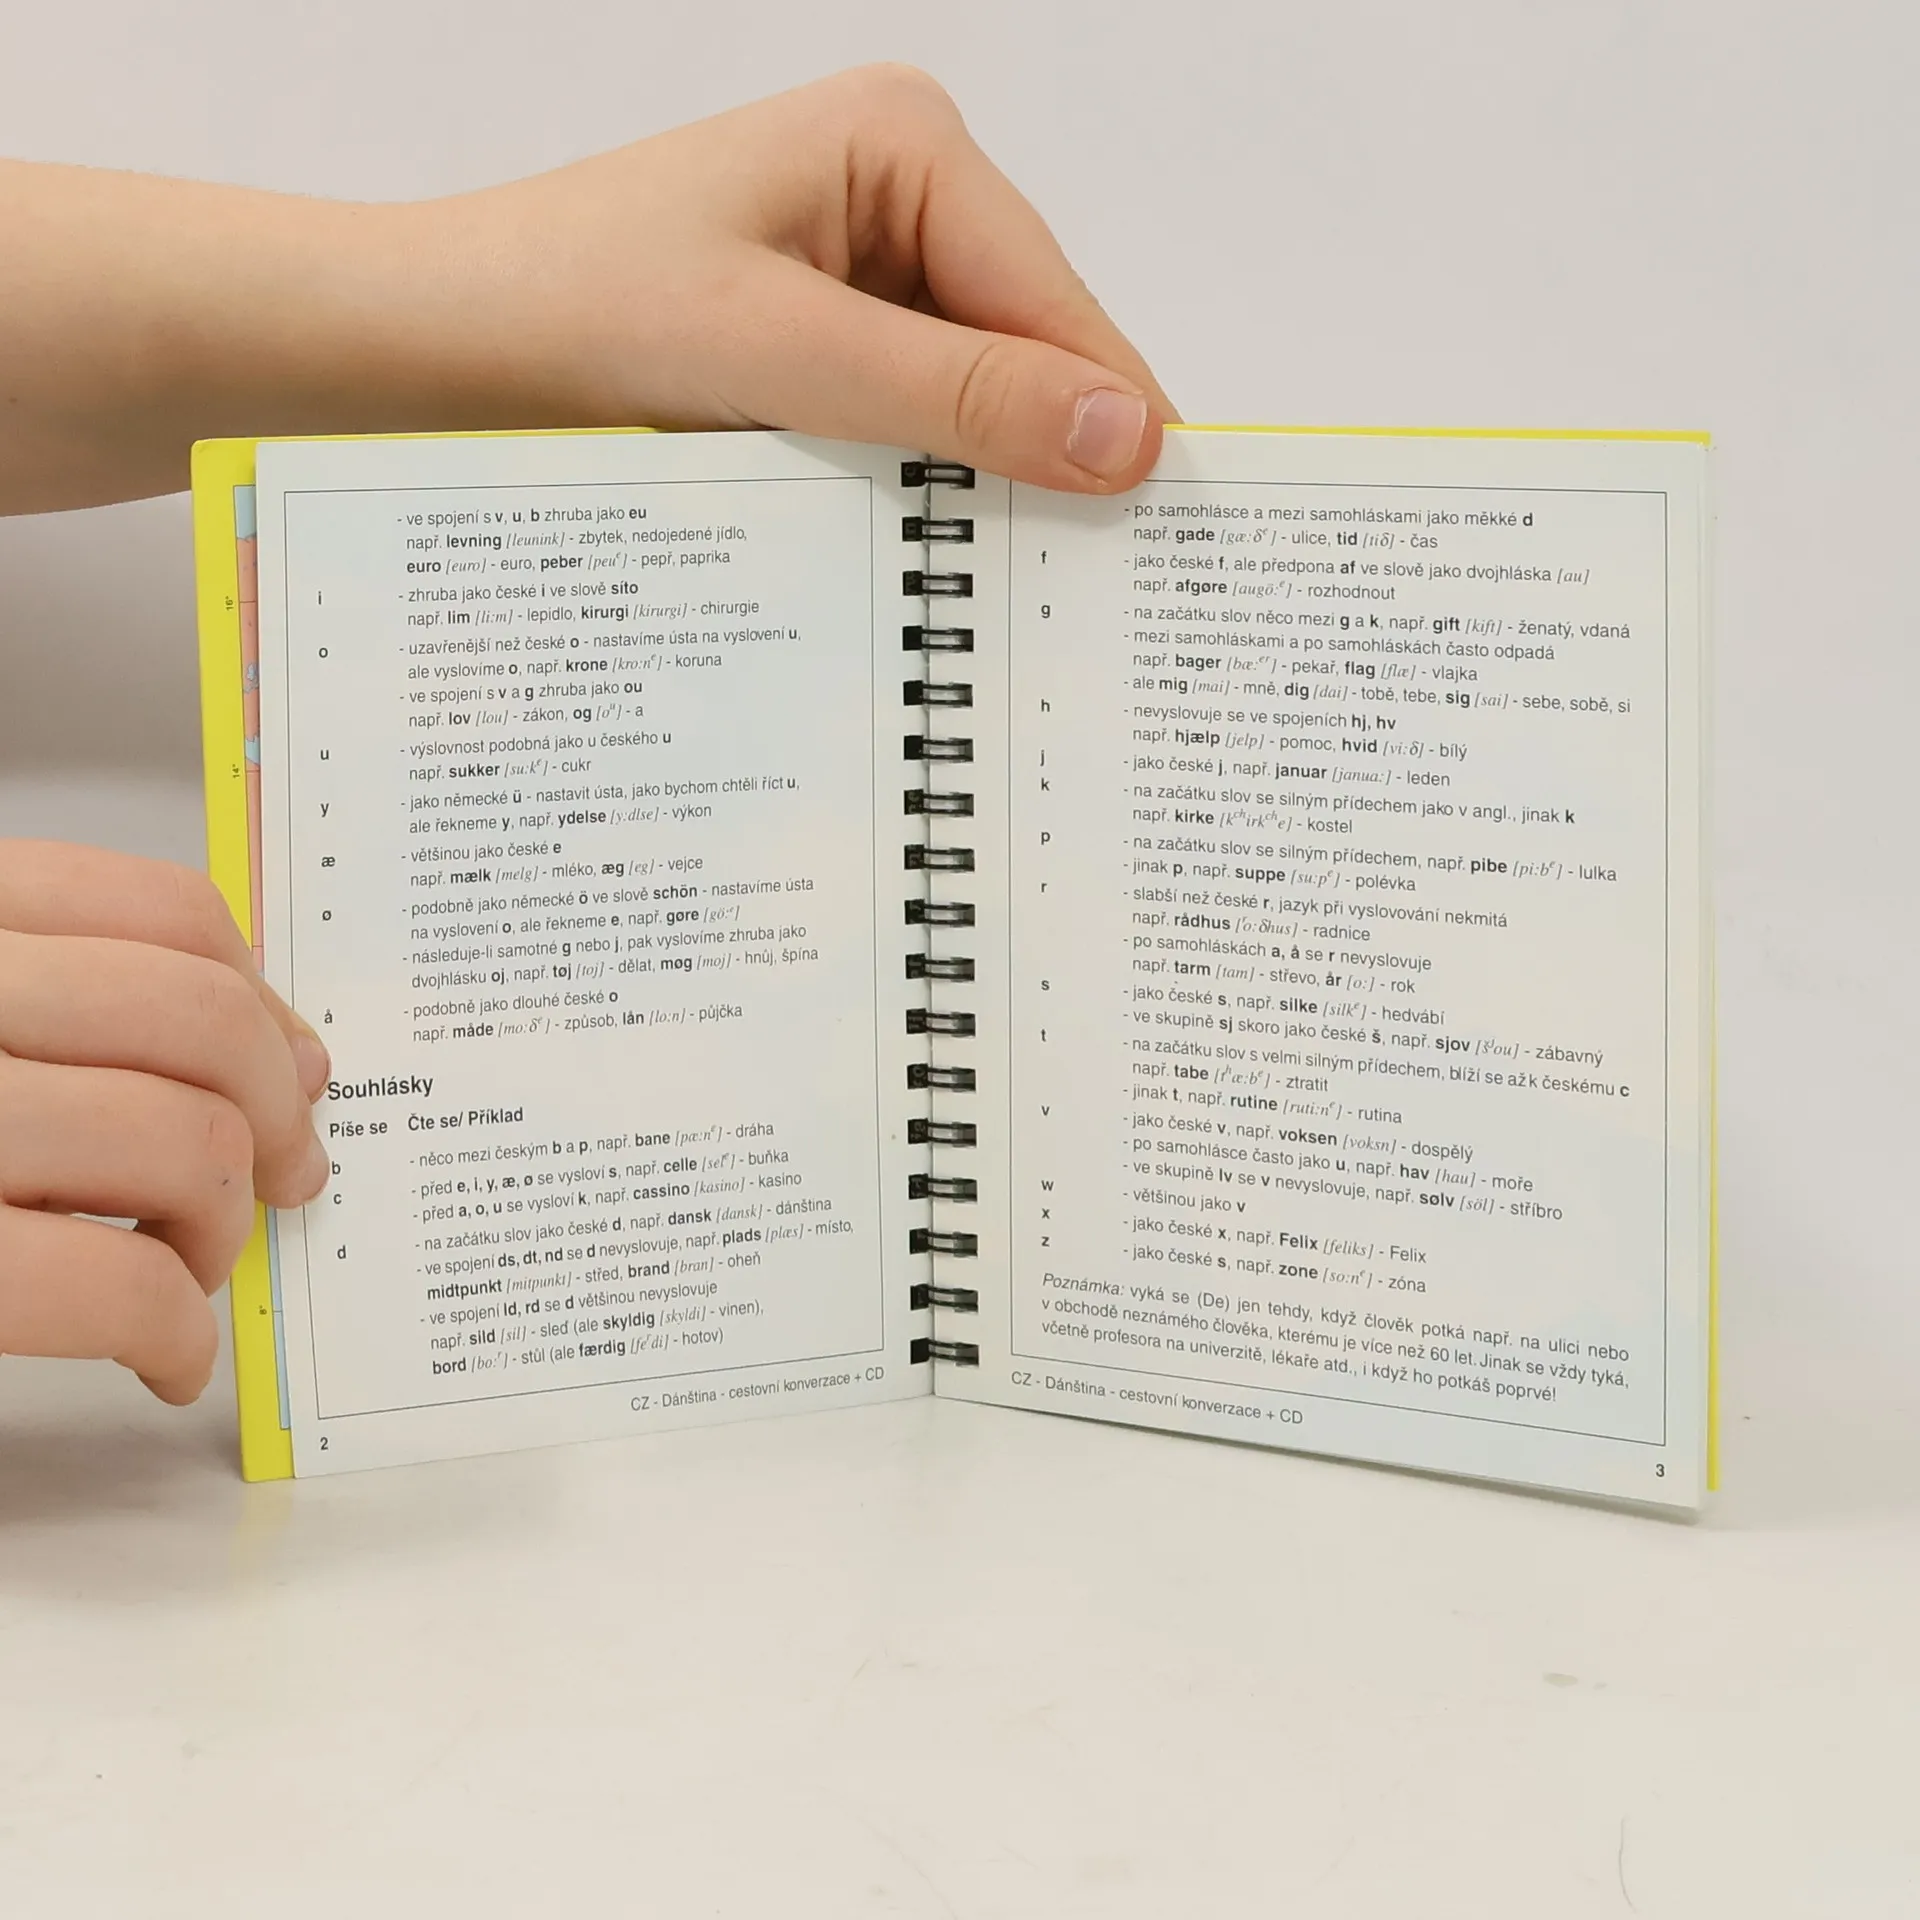 - ve spojení s v, u, b zhruba jako eu
např. levning [leunink] - zbytek, nedojedené jídlo,
euro [euro] - euro, peber [peuᵉ] - pepř, paprika
i - zhruba jako české i ve slově síto
např. lim [li:m] - lepidlo, kirurgi [kirurgi] - chirurgie
o - uzavřenější než české o - nastavíme ústa na vyslovení u,
ale vyslovíme o, např. krone [kro:nᵉ] - koruna
- ve spojení s v a g zhruba jako ou
např. lov [lou] - zákon, og [oᵘ] - a
u - výslovnost podobná jako u českého u
např. sukker [su:kᵉ] - cukr
y - jako německé ü - nastavit ústa, jako bychom chtěli říct u,
ale řekneme y, např. ydelse [y:dlse] - výkon
æ - většinou jako české e
např. mælk [melg] - mléko, æg [eg] - vejce
ø - podobně jako německé ö ve slově schön - nastavíme ústa
na vyslovení o, ale řekneme e, např. gøre [gö:ᵉ]
- následuje-li samotné g nebo j, pak vyslovíme zhruba jako
dvojhlásku oj, např. tøj [toj] - dělat, møg [moj] - hnůj, špína
å - podobně jako dlouhé české o
např. måde [mo:δᵉ] - způsob, lån [lo:n] - půjčka
Souhlásky
Píše se Čte se/ Příklad
b - něco mezi českým b a p, např. bane [pæ:nᵉ] - dráha
c - před e, i, y, æ, ø se vysloví s, např. celle [selᵉ] - buňka
- před a, o, u se vysloví k, např. cassino [kasino] - kasino
d - na začátku slov jako české d, např. dansk [dansk] - dánština
- ve spojení ds, dt, nd se d nevyslovuje, např. plads [plæs] - místo,
midtpunkt [mitpunkt] - střed, brand [bran] - oheň
- ve spojení ld, rd se d většinou nevyslovuje
např. sild [sil] - sleď (ale skyldig [skyldi] - vinen),
bord [bo:ʳ] - stůl (ale færdig [feʳdi] - hotov)
CZ - Dánština - cestovní konverzace + CD
2
- po samohlásce a mezi samohláskami jako měkké d
např. gade [gæ:δᵉ] - ulice, tid [tiδ] - čas
f - jako české f, ale předpona af ve slově jako dvojhláska [au]
např. afgøre [augö:ᵉ] - rozhodnout
g - na začátku slov něco mezi g a k, např. gift [kift] - ženatý, vdaná
- mezi samohláskami a po samohláskách často odpadá
např. bager [bæ:ᵉʳ] - pekař, flag [flæ] - vlajka
- ale mig [mai] - mně, dig [dai] - tobě, tebe, sig [sai] - sebe, sobě, si
h - nevyslovuje se ve spojeních hj, hv
např. hjælp [jelp] - pomoc, hvid [vi:δ] - bílý
j - jako české j, např. januar [janua:] - leden
k - na začátku slov se silným přídechem jako v angl., jinak k
např. kirke [kᶜʰirkᶜʰe] - kostel
p - na začátku slov se silným přídechem, např. pibe [pi:bᵉ] - lulka
- jinak p, např. suppe [su:pᵉ] - polévka
r - slabší než české r, jazyk při vyslovování nekmitá
např. rådhus [ʳo:δhus] - radnice
- po samohláskách a, å se r nevyslovuje
např. tarm [tam] - střevo, år [o:] - rok
s - jako české s, např. silke [silkᵉ] - hedvábí
- ve skupině sj skoro jako české š, např. sjov [šʲou] - zábavný
t - na začátku slov s velmi silným přídechem, blíží se až k českému c
např. tabe [tʰæ:bᵉ] - ztratit
- jinak t, např. rutine [ruti:nᵉ] - rutina
v - jako české v, např. voksen [voksn] - dospělý
- po samohlásce často jako u, např. hav [hau] - moře
- ve skupině lv se v nevyslovuje, např. sølv [söl] - stříbro
w - většinou jako v
x - jako české x, např. Felix [feliks] - Felix
z - jako české s, např. zone [so:nᵉ] - zóna
Poznámka: vyká se (De) jen tehdy, když člověk potká např. na ulici nebo
v obchodě neznámého člověka, kterému je více než 60 let. Jinak se vždy tyká,
včetně profesora na univerzitě, lékaře atd., i když ho potkáš poprvé!
CZ - Dánština - cestovní konverzace + CD
3